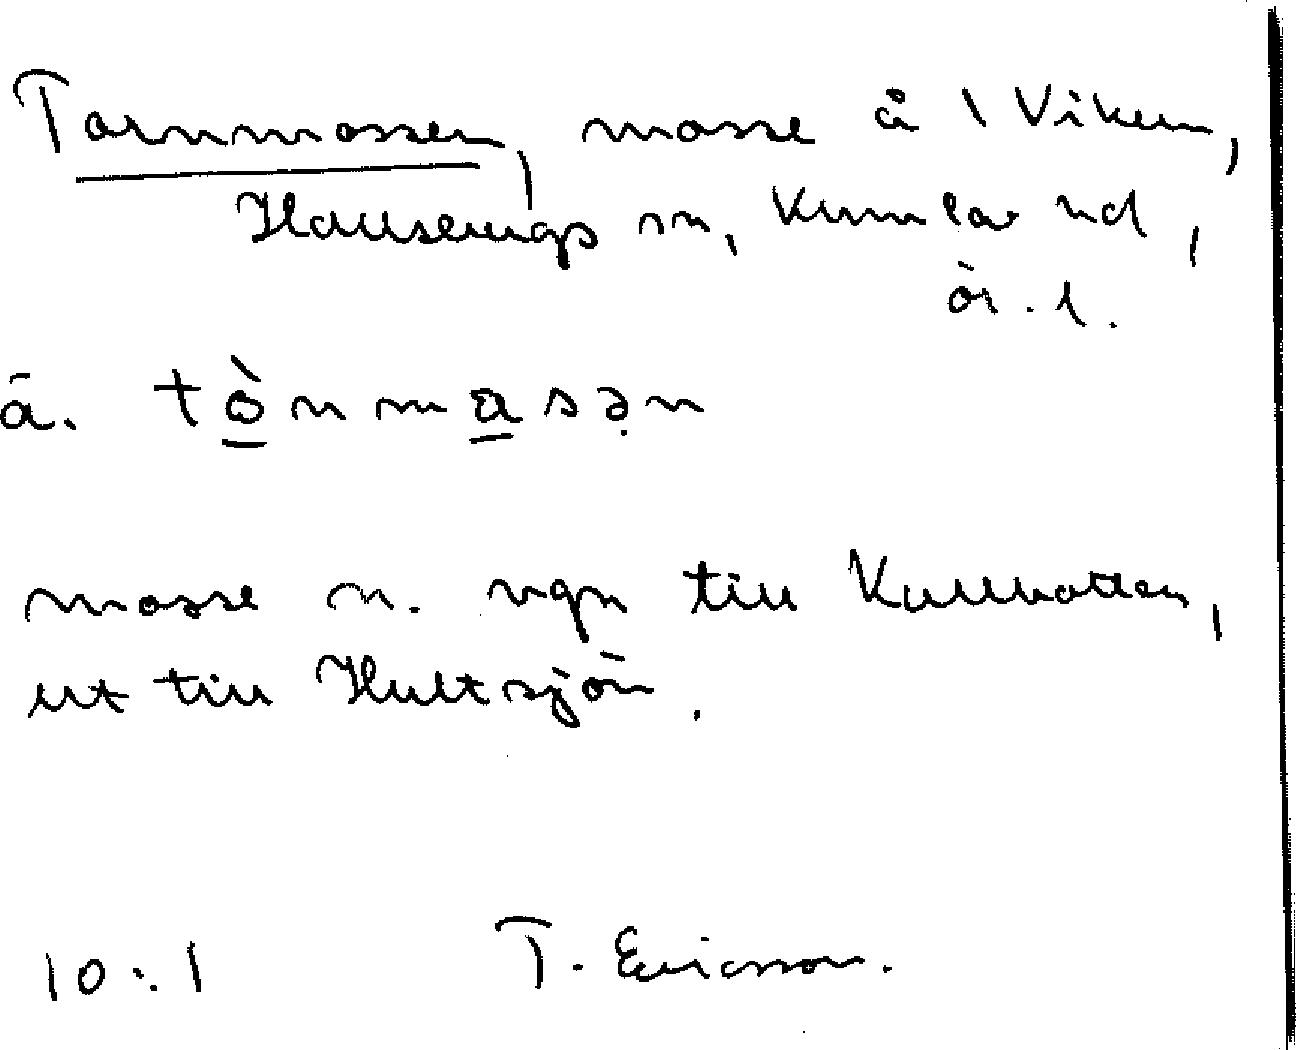 Tarnmossen, mosse å 1 Viken,
Hallsbergs sn, Kumla hd,
ör. l.
ä. tònmasən
mosse n. ngn till Kullbotten,
ut till Hultsjön.
10:1 T. Ericsson.